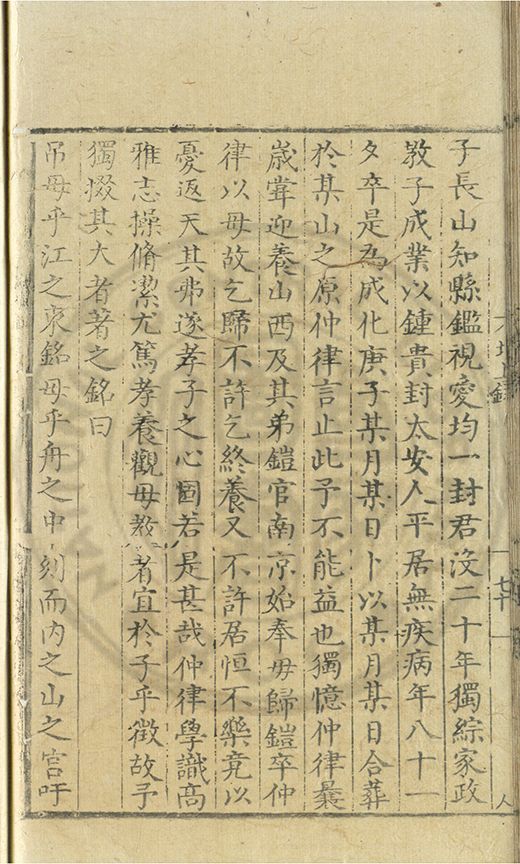 子長山知縣鑑視愛均一封君沒二十年獨綜家政
敎子成業以鍾貴封太安人平居無疾病年八十一
夕卒是為成化庚子某月某日卜以某月某日合葬
於某山之原仲律言止此予不能益也獨憶仲律曩
歲甞迎養山西及其弟鎧官南京始奉母歸鎧卒仲
律以母故乞歸不許乞終養又不許居恒不樂竟以
憂返天其弗遂孝子之心固若是甚哉仲律學識高
雅志操脩潔尤篤孝養觀母敎者宜於子乎徵故予
獨掇其大者著之銘曰
吊母乎江之東銘母乎舟之中刻而內之山之宮吁
七十
人